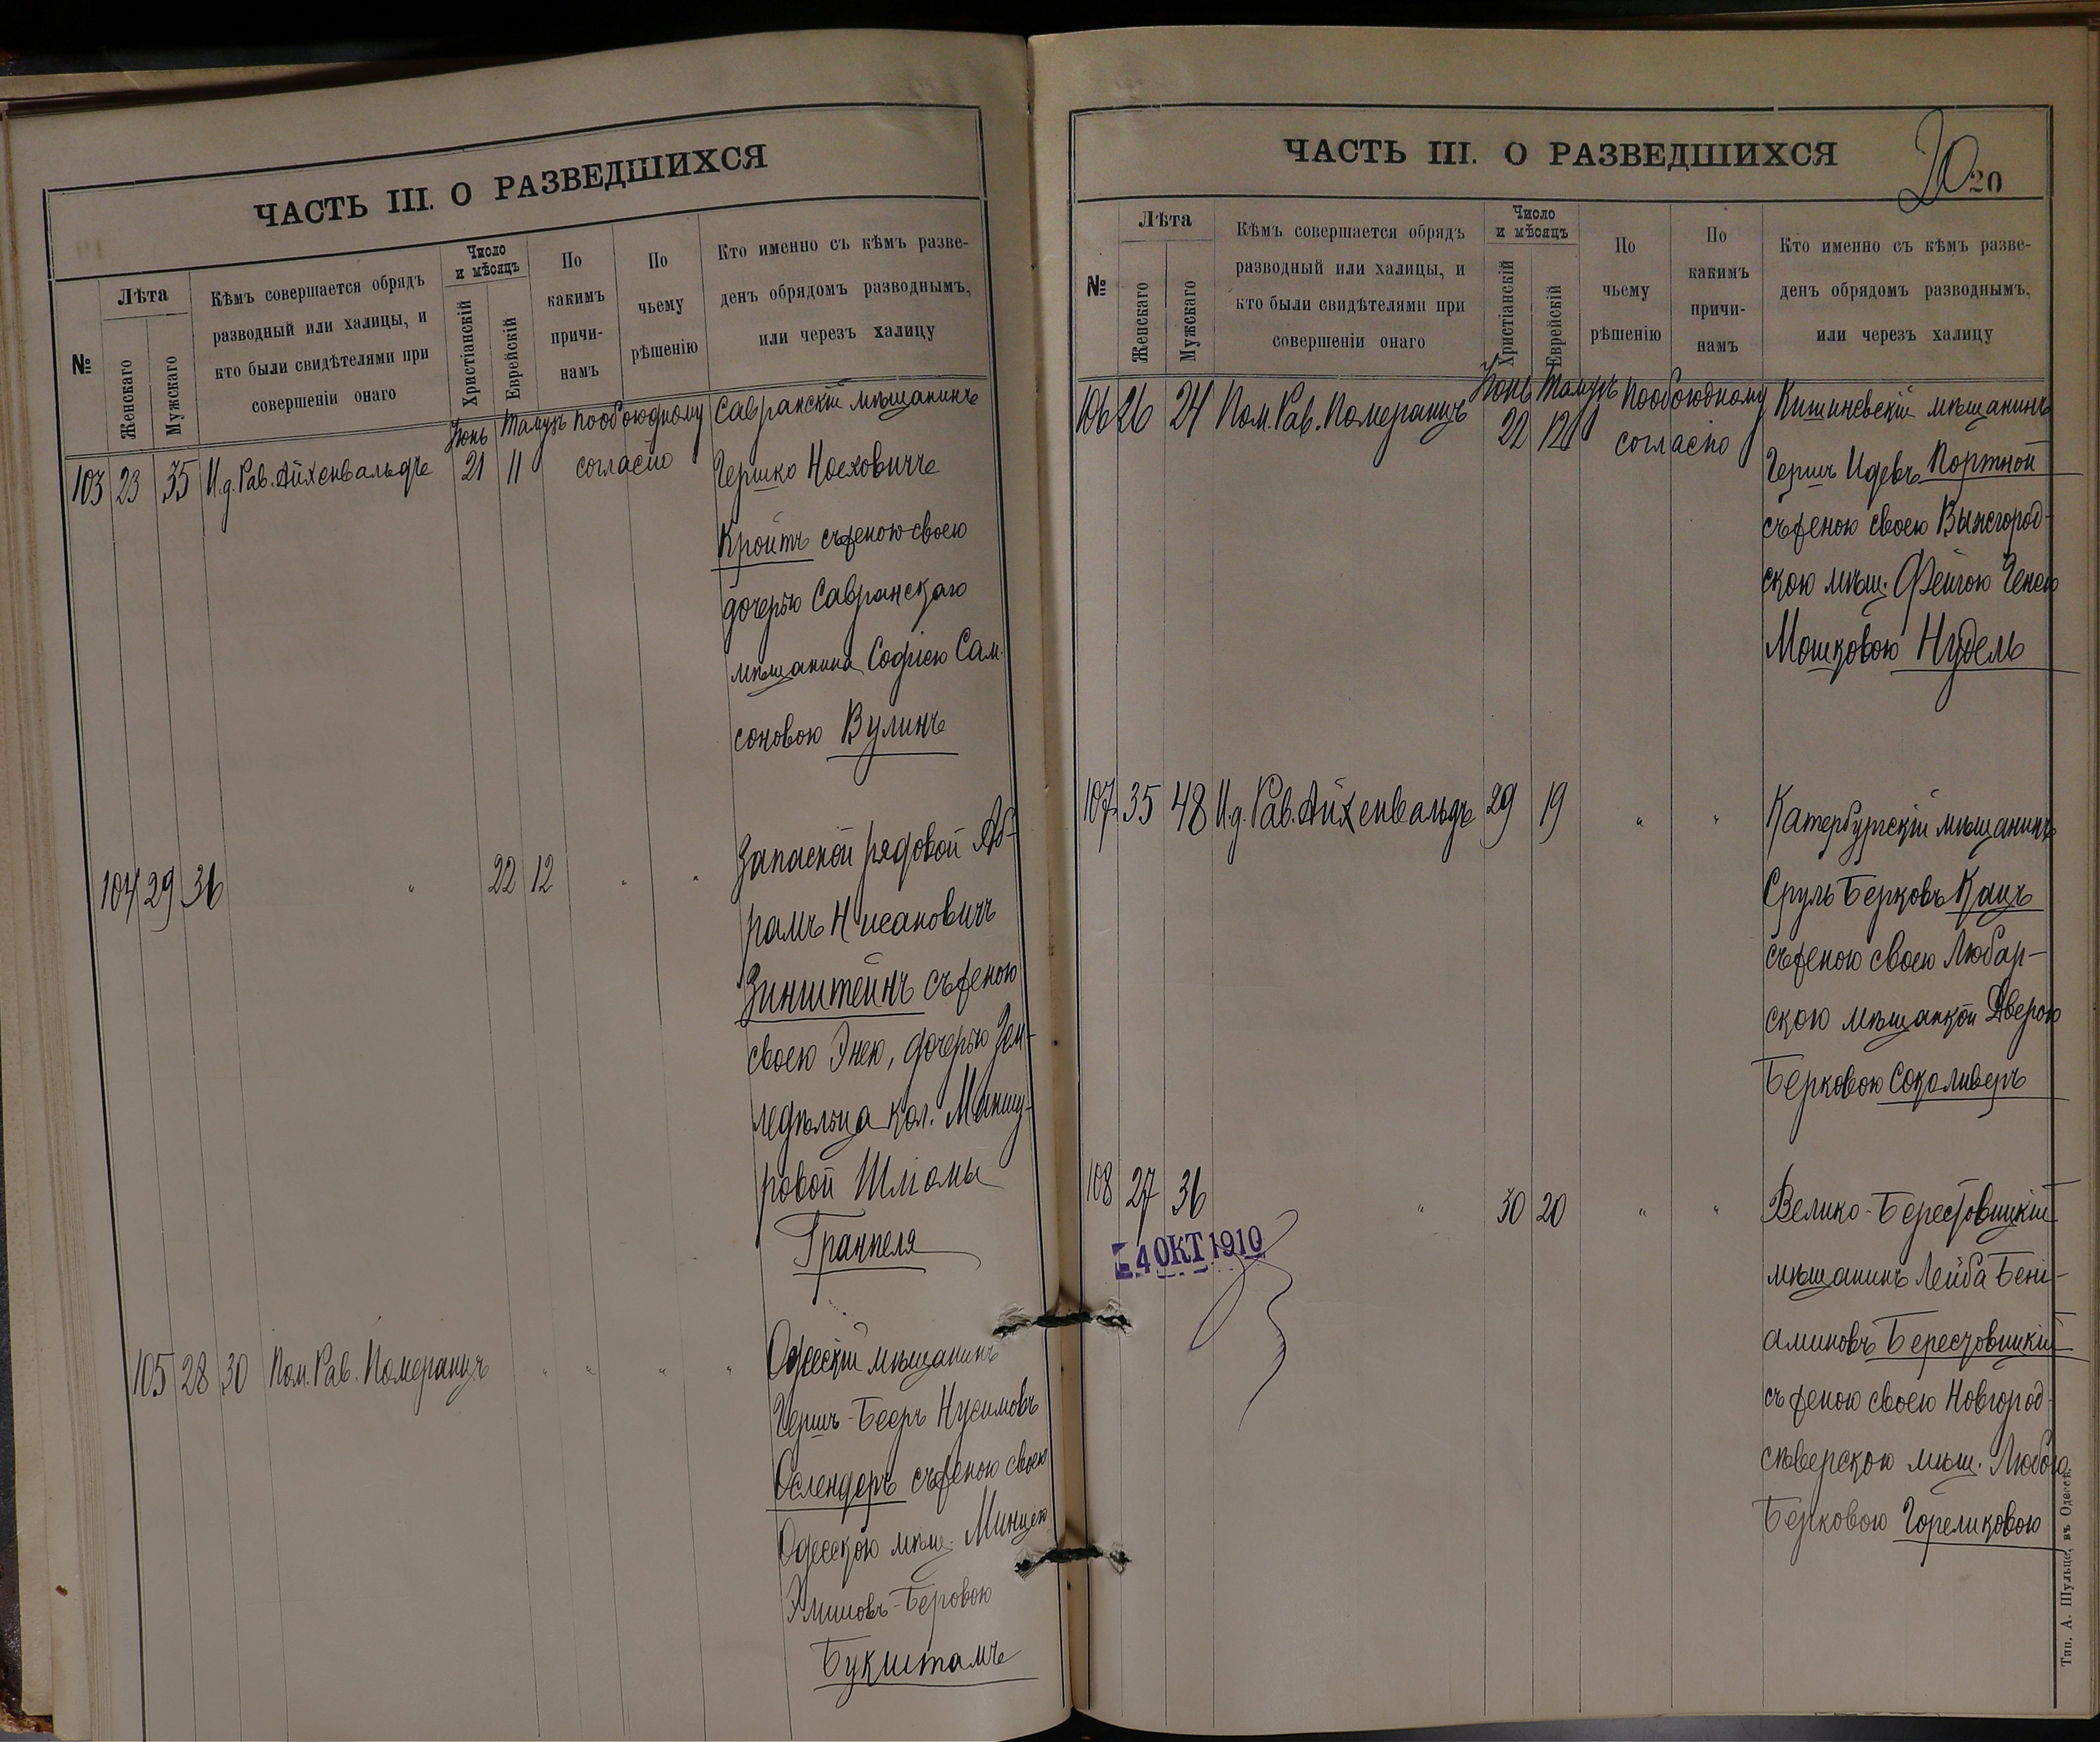 ЧАСТЬ III. О РАЗВЕДШИХСЯ
№
Лѣта
Женскаго
Мужскаго
Кѣмъ совершается обрядъ
разводный или халицы, и
кто были свидѣтелями при
совершеніи онаго
Число
и мѣсяцъ
Христіанскій
Еврейскій
По
какимъ
причи-
намъ
По
чьему
рѣшенію
Кто именно съ кѣмъ разве-
денъ обрядомъ разводнымъ,
или через халицу
Іюнь Тамузъ по обоюдному Савранскій мѣщанинъ
103 23 35 И.д. Рав. Айхенвальдъ 21 11 согласію Гершко Носховичъ
Кройтъ съ женою своею
дочерью Савранскаго
мѣщанина Софіею Сам-
соновою Вулинъ
104 29 36 " 22 12 " " Запасной рядовой Аб-
рамъ Нисановичъ
Зинштейнъ съ женою
своею Энею, дочерью Зем-
ледѣльца кол. Маншу-
ровой Шліомы
Гранпеля
105 28 30 Пом. Рав. Померанцъ " " " " Одесскій мѣщанинъ
Гершъ-Беэръ Нусимовъ
Ослендеръ съ женою своею
Одесскою мѣщ. Минцею
Хмиловъ-Беровою
Букштамъ
ЧАСТЬ III. О РАЗВЕДШИХСЯ
20 20
№
Лѣта
Женскаго
Мужскаго
Кѣмъ совершается обрядъ
разводный или халицы, и
кто были свидѣтелями при
совершеніи онаго
Число
и мѣсяцъ
Христіанскій
Еврейскій
По
чьему
рѣшенію
По
какимъ
причи-
намъ
Кто именно съ кѣмъ разве-
денъ обрядомъ разводнымъ,
или черезъ халицу
Іюнь Тамузъ по обоюдному
106 26 24 Пом. Рав. Померанцъ 22 12 согласію Кишиневскій мѣщанинъ
Гершъ Идевъ Портной
съ женою своею Вышгород-
скою мѣщ. Фейгою Генею
Мошковою Нудель
107 35 48 И.д. Рав. Айхенвальдъ 29 19 " " Катербургскій мѣщанинъ
Сруль Берковъ Кацъ
съ женою своею Любар-
скою мѣщанкой Дверою
Берковою Соколиверъ
108 27 36 " 30 20 " " Велико-Берестовицкій
мѣщанинъ Лейба Бені-
аминовъ Берестовицкій
съ женою своею Новгород-
сѣверскою мѣщ. Любою
Берковою Гореликовою
4 ОКТ 1910
Тип. А. Шульце, въ Одессѣ.